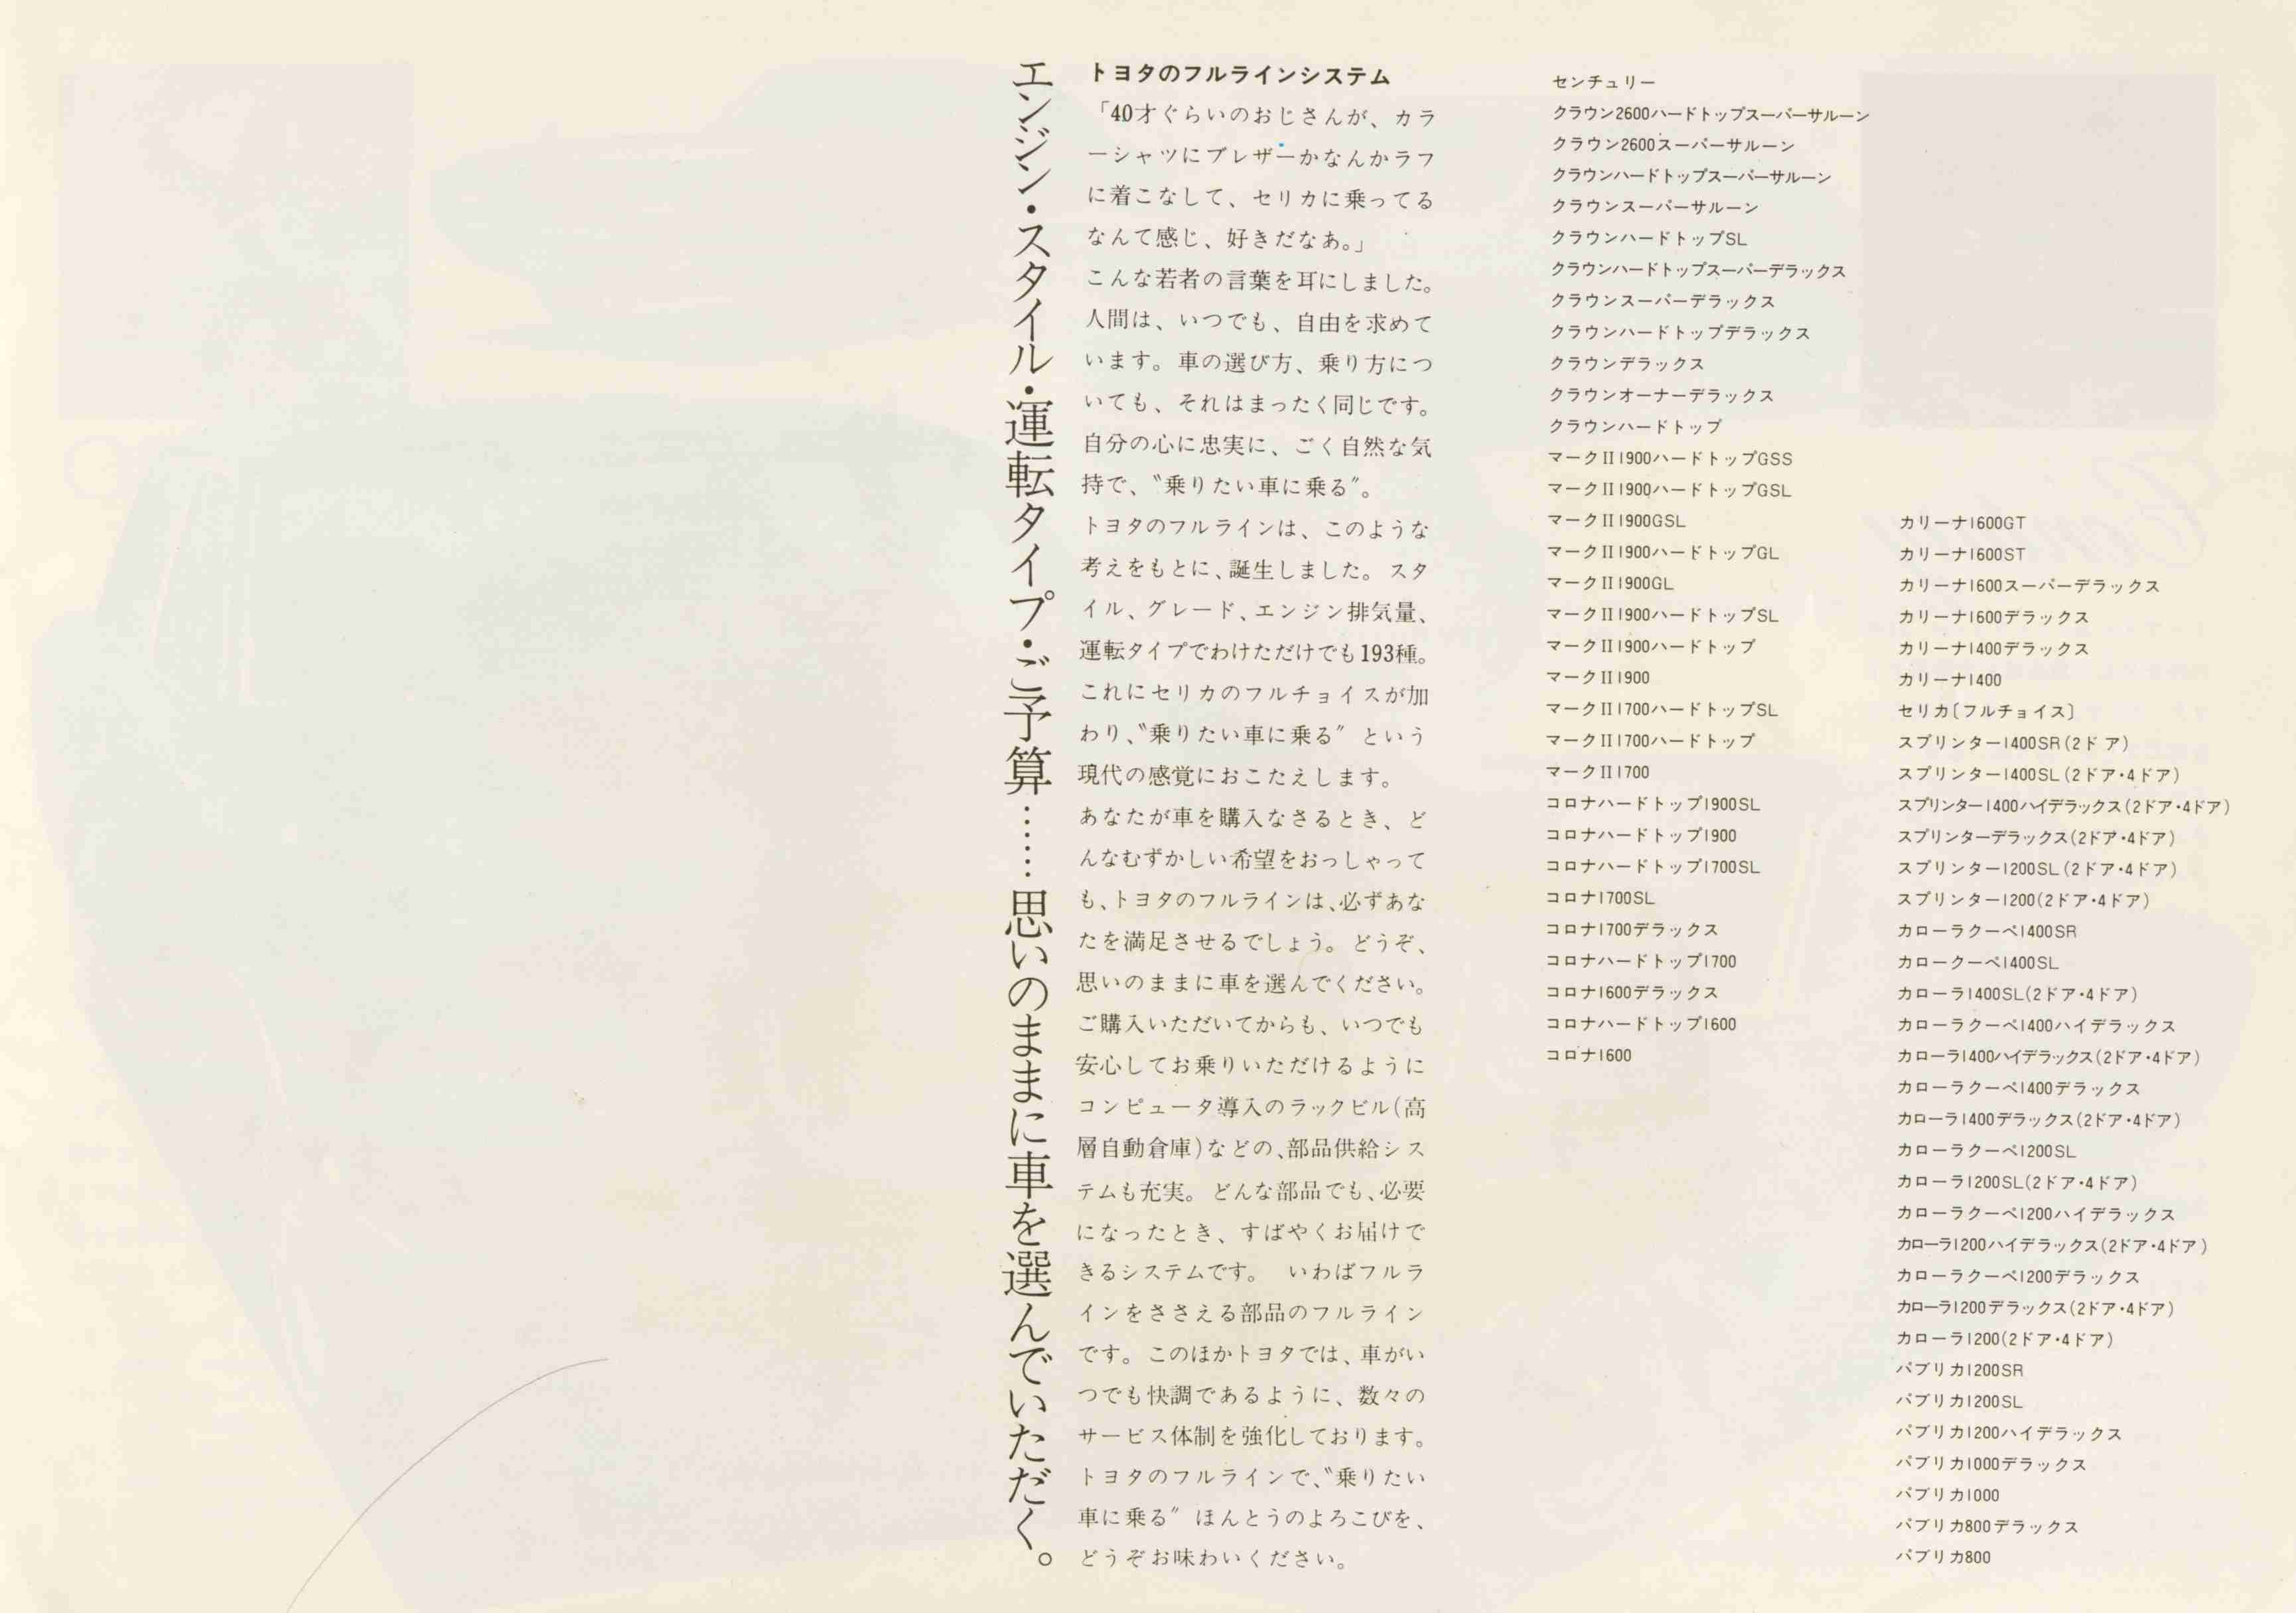 エンジン・スタイル・運転タイプ・ご予算……思いのままに車を選んでいただく。
トヨタのフルラインシステム
「40才ぐらいのおじさんが、カラ
ーシャツにブレザーかなんかラフ
に着こなして、セリカに乗ってる
なんて感じ、好きだなあ。」
こんな若者の言葉を耳にしました。
人間は、いつでも、自由を求めて
います。車の選び方、乗り方につ
いても、それはまったく同じです。
自分の心に忠実に、ごく自然な気
持で、〝乗りたい車に乗る〞。
トヨタのフルラインは、このような
考えをもとに、誕生しました。スタ
イル、グレード、エンジン排気量、
運転タイプでわけただけでも193種。
これにセリカのフルチョイスが加
わり、〝乗りたい車に乗る〞という
現代の感覚におこたえします。
あなたが車を購入なさるとき、ど
んなむずかしい希望をおっしゃって
も、トヨタのフルラインは、必ずあな
たを満足させるでしょう。どうぞ、
思いのままに車を選んでください。
ご購入いただいてからも、いつでも
安心してお乗りいただけるように
コンピュータ導入のラックビル(高
層自動倉庫)などの、部品供給シス
テムも充実。どんな部品でも、必要
になったとき、すばやくお届けで
きるシステムです。 いわばフルラ
インをささえる部品のフルライン
です。このほかトヨタでは、車がい
つでも快調であるように、数々の
サービス体制を強化しております。
トヨタのフルラインで、〝乗りたい
車に乗る〞ほんとうのよろこびを、
どうぞお味わいください。
センチュリー
クラウン2600ハードトップスーパーサルーン
クラウン2600スーパーサルーン
クラウンハードトップスーパーサルーン
クラウンスーパーサルーン
クラウンハードトップSL
クラウンハードトップスーパーデラックス
クラウンスーパーデラックス
クラウンハードトップデラックス
クラウンデラックス
クラウンオーナーデラックス
クラウンハードトップ
マークII1900ハードトップGSS
マークII1900ハードトップGSL
マークII1900GSL
マークII1900ハードトップGL
マークII1900GL
マークII1900ハードトップSL
マークII1900ハードトップ
マークII1900
マークII1700ハードトップSL
マークII1700ハードトップ
マークII1700
コロナハードトップ1900SL
コロナハードトップ1900
コロナハードトップ1700SL
コロナ1700SL
コロナ1700デラックス
コロナハードトップ1700
コロナ1600デラックス
コロナハードトップ1600
コロナ1600
カリーナ1600GT
カリーナ1600ST
カリーナ1600スーパーデラックス
カリーナ1600デラックス
カリーナ1400デラックス
カリーナ1400
セリカ〔フルチョイス〕
スプリンター1400SR(2ドア)
スプリンター1400SL(2ドア・4ドア)
スプリンター1400ハイデラックス(2ドア・4ドア)
スプリンターデラックス(2ドア・4ドア)
スプリンター1200SL(2ドア・4ドア)
スプリンター1200(2ドア・4ドア)
カローラクーペ1400SR
カロークーペ1400SL
カローラ1400SL(2ドア・4ドア)
カローラクーペ1400ハイデラックス
カローラ1400ハイデラックス(2ドア・4ドア)
カローラクーペ1400デラックス
カローラ1400デラックス(2ドア・4ドア)
カローラクーペ1200SL
カローラ1200SL(2ドア・4ドア)
カローラクーペ1200ハイデラックス
カローラ1200ハイデラックス(2ドア・4ドア)
カローラクーペ1200デラックス
カローラ1200デラックス(2ドア・4ドア)
カローラ1200(2ドア・4ドア)
パブリカ1200SR
パブリカ1200SL
パブリカ1200ハイデラックス
パブリカ1000デラックス
パブリカ1000
パブリカ800デラックス
パブリカ800